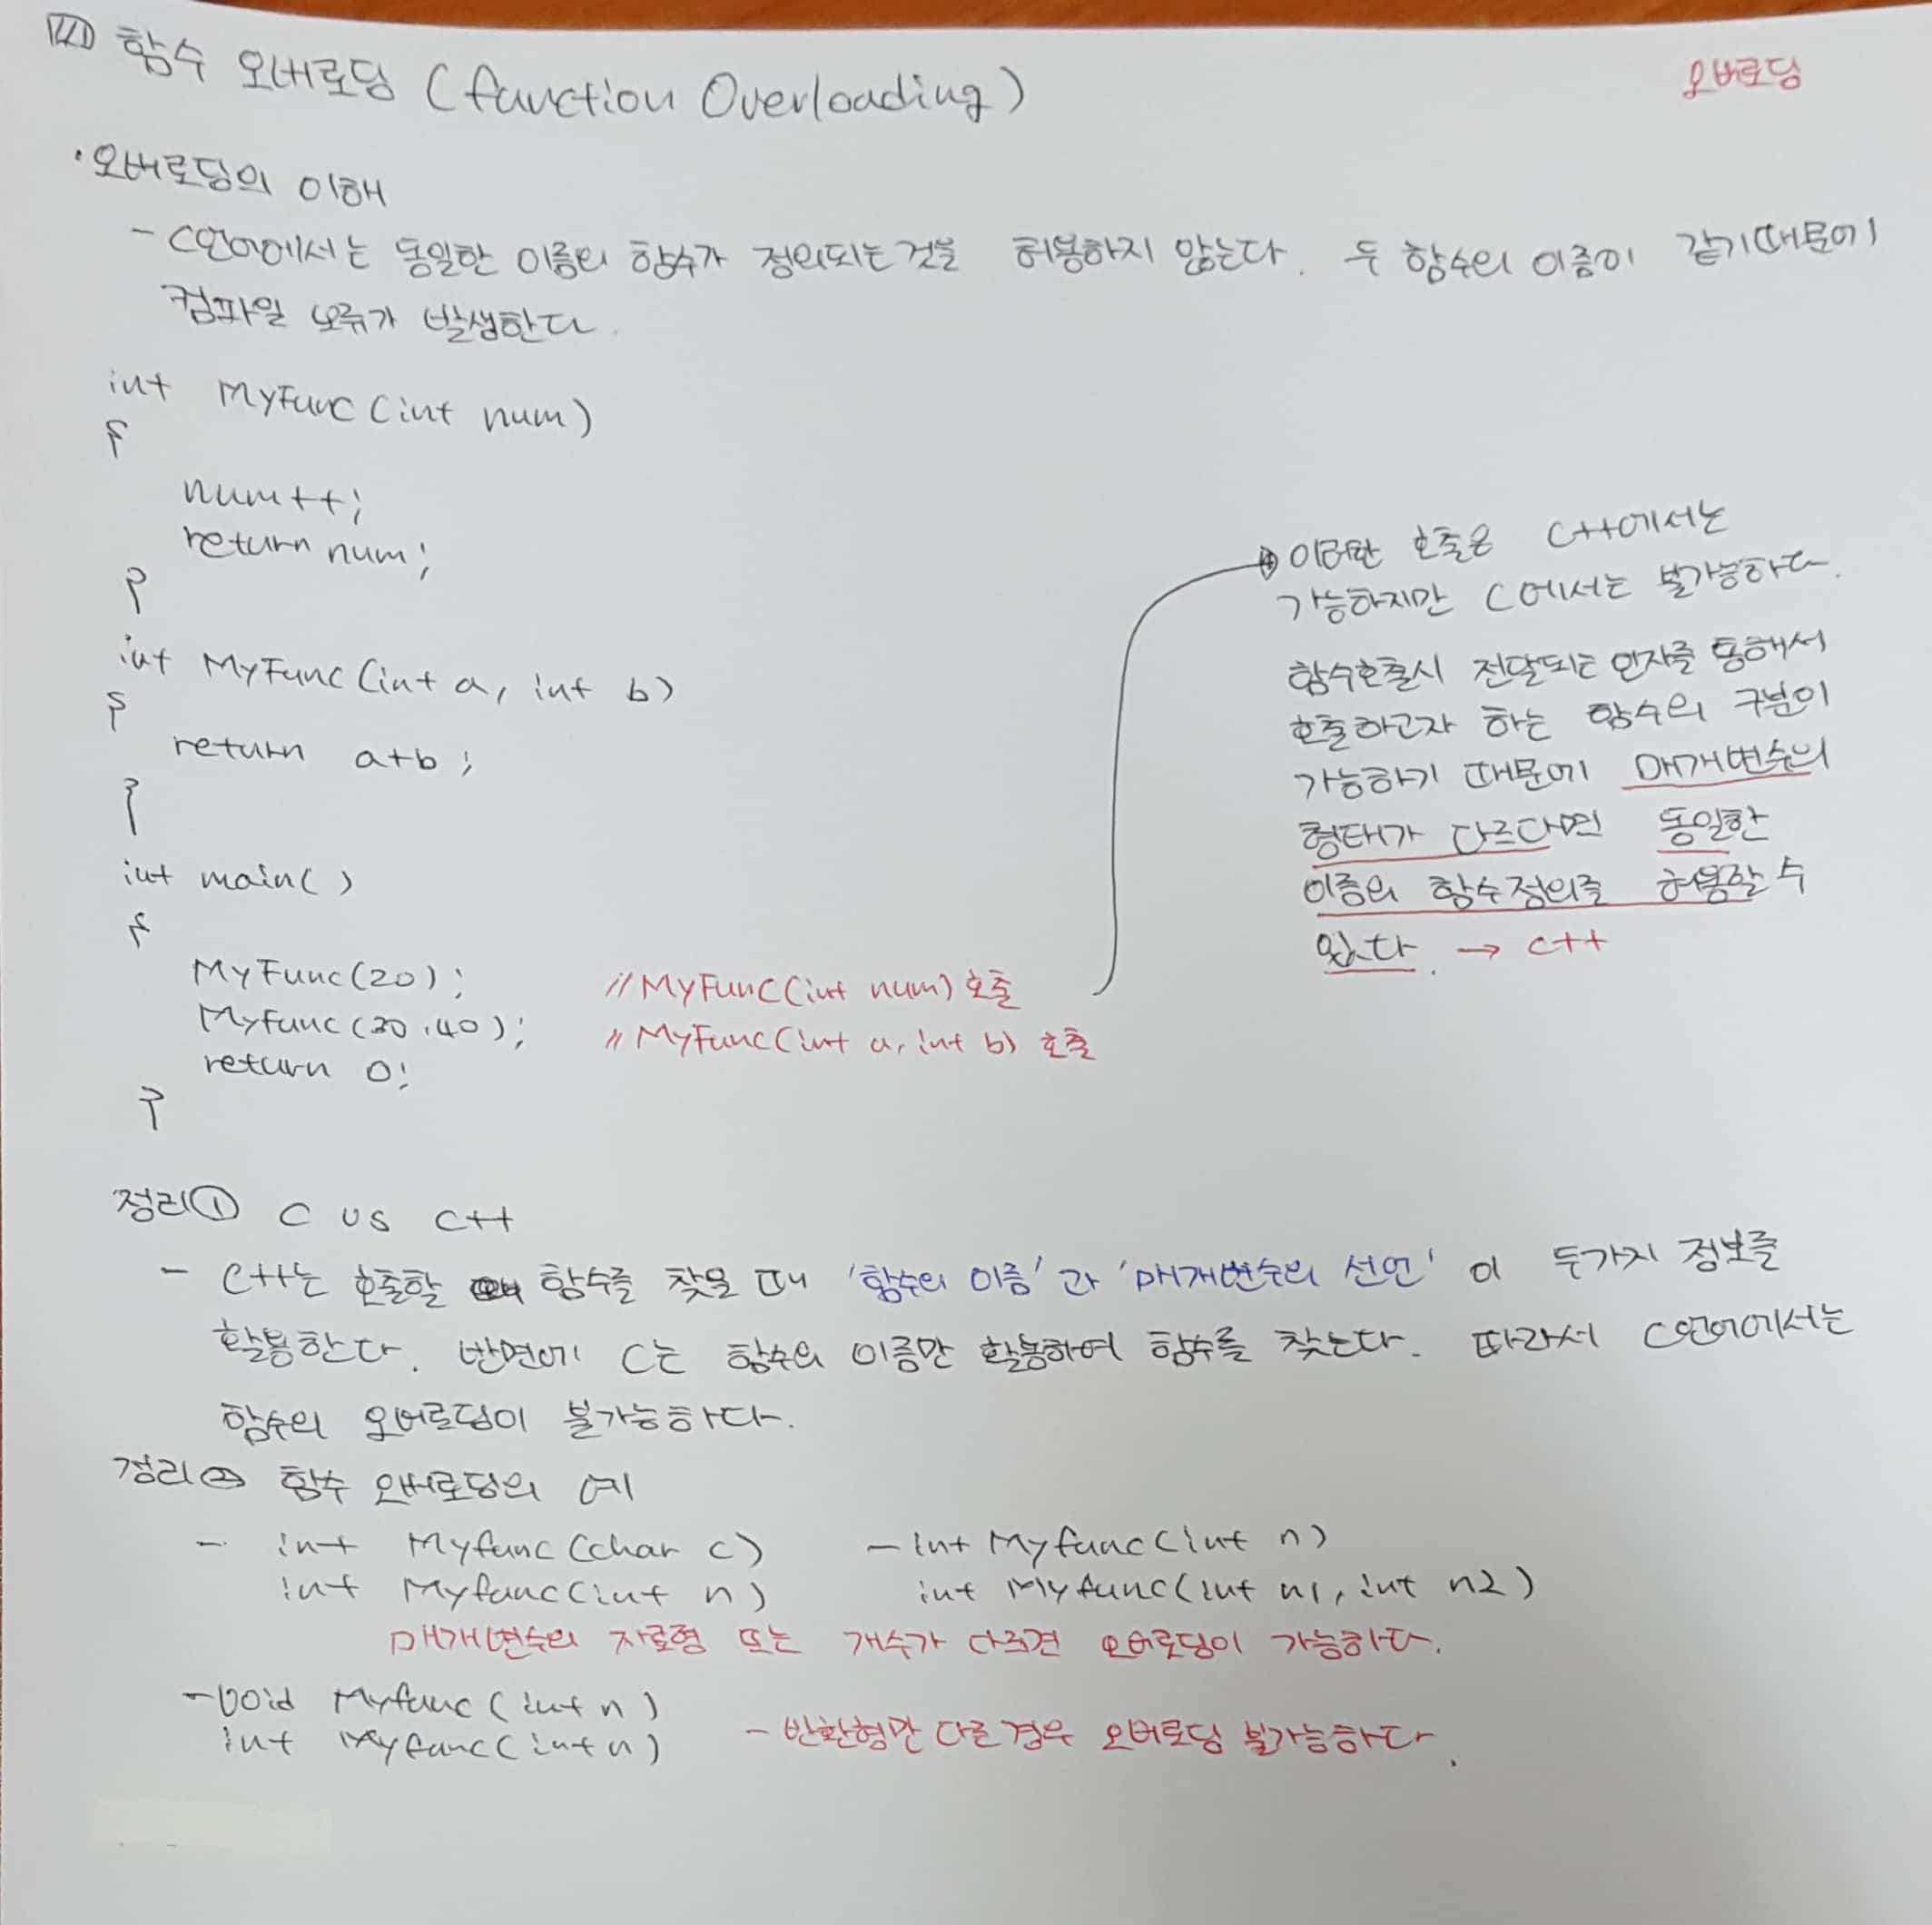 함수 오버로딩 (function Overloading)
오버로딩
· 오버로딩의 이해
- C언어에서는 동일한 이름의 함수가 정의되는것을 허용하지 않는다. 두 함수의 이름이 같기때문에
컴파일 오류가 발생한다.
int MyFunc (int num)
{
num++;
return num;
}
int MyFunc (int a, int b)
{
return a+b;
}
int main()
{
MyFunc(20); //MyFunc(int num) 호출
Myfunc(30,40); //MyFunc(int a, int b) 호출
return 0;
}
→ 이러한 호출은 C++에서는
가능하지만 C에서는 불가능하다.
함수호출시 전달되는 인자를 통해서
호출하고자 하는 함수의 구분이
가능하기 때문에 매개변수의
형태가 다르다면 동일한
이름의 함수정의를 허용할 수
있다. → C++
정리① C vs C++
- C++는 호출할 함수를 찾을 때 '함수의 이름'과 '매개변수의 선언' 이 두가지 정보를
활용한다. 반면에 C는 함수의 이름만 활용하여 함수를 찾는다. 따라서 C언어에서는
함수의 오버로딩이 불가능하다.
정리② 함수 오버로딩의 예
- int Myfunc (char c) - int Myfunc (int n)
int Myfunc (int n) int Myfunc (int n1, int n2)
매개변수의 자료형 또는 개수가 다르면 오버로딩이 가능하다.
- void Myfunc (int n)
int Myfunc (int n) - 반환형만 다른경우 오버로딩 불가능하다.